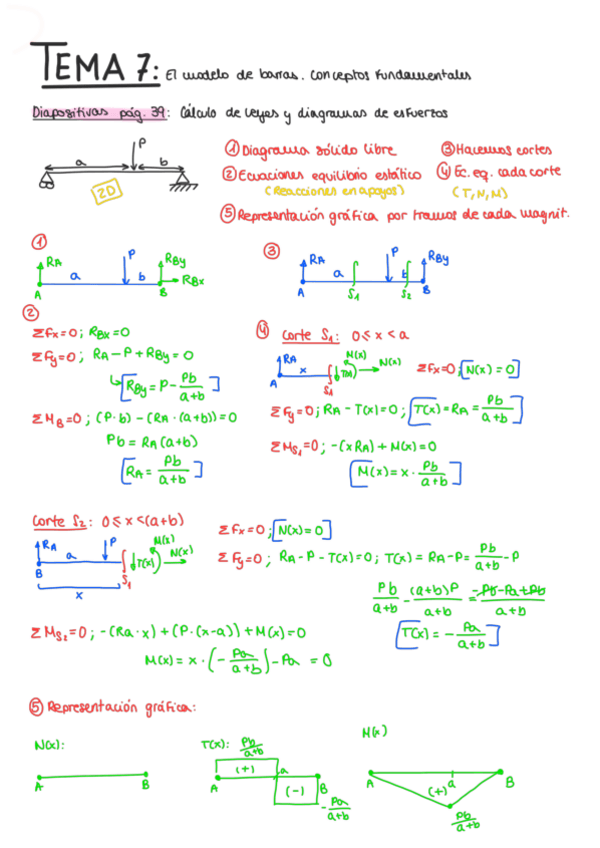 TEMA 7: El modelo de barras. Conceptos Fundamentales
Diapositivas pág. 39: Cálculo de leyes y diagramas de esfuerzos
P
a
b
2D
① Diagrama sólido libre
③ Hacemos cortes
② Ecuaciones equilibrio estático
④ Ec. eq. cada corte
(Reacciones en apoyos)
(T, N, M)
⑤ Representación gráfica por tramos de cada magnit.
①
RA
P
RBy
a
b
RBx
A
B
③
RA
P
RBy
a
b
A
S1
S2
B
②
ΣFx=0; RBx=0
ΣFy=0; RA-P+RBy=0
[RBy=P-Pb/a+b]
ΣMB=0; (P·b)-(RA·(a+b))=0
Pb=RA(a+b)
[RA=Pb/a+b]
④ Corte S1: 0≤x<a
RA
x
M(x)
N(x)
T(x)
A
S1
ΣFx=0; [N(x)=0]
ΣFy=0; RA-T(x)=0; [T(x)=RA=Pb/a+b]
ΣMS1=0; -(xRA)+M(x)=0
[M(x)=x·Pb/a+b]
Corte S2: 0≤x<(a+b)
RA
a
P
M(x)
N(x)
T(x)
B
S1
x
ΣFx=0; [N(x)=0]
ΣFy=0; RA-P-T(x)=0; T(x)=RA-P=Pb/a+b-P
Pb/a+b-(a+b)P/a+b=-Pb-Pa+Pb/a+b
[T(x)=-Pa/a+b]
ΣMS2=0; -(Ra·x)+(P·(x-a))+M(x)=0
M(x)=x·(-Pa/a+b)-Pa=0
⑤ Representación gráfica:
N(x):
A
B
T(x): Pb/a+b
(+)
a
A
(-)
B
-Pa/a+b
M(x)
A
a
B
(+)
Pb/a+b